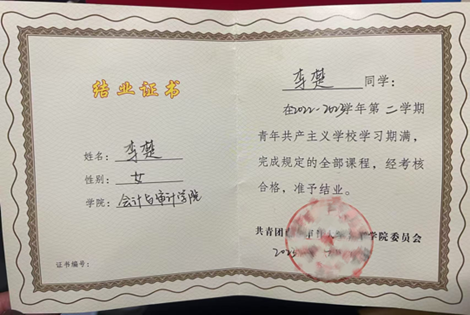 结业证书
姓名：李楚
性别：女
学院：会计与审计学院
证书编号：
李楚 同学：
在2022-2023学年第二学期
青年共产主义学校学习期满，
完成规定的全部课程，经考核
合格，准予结业。
共青团 学院委员会